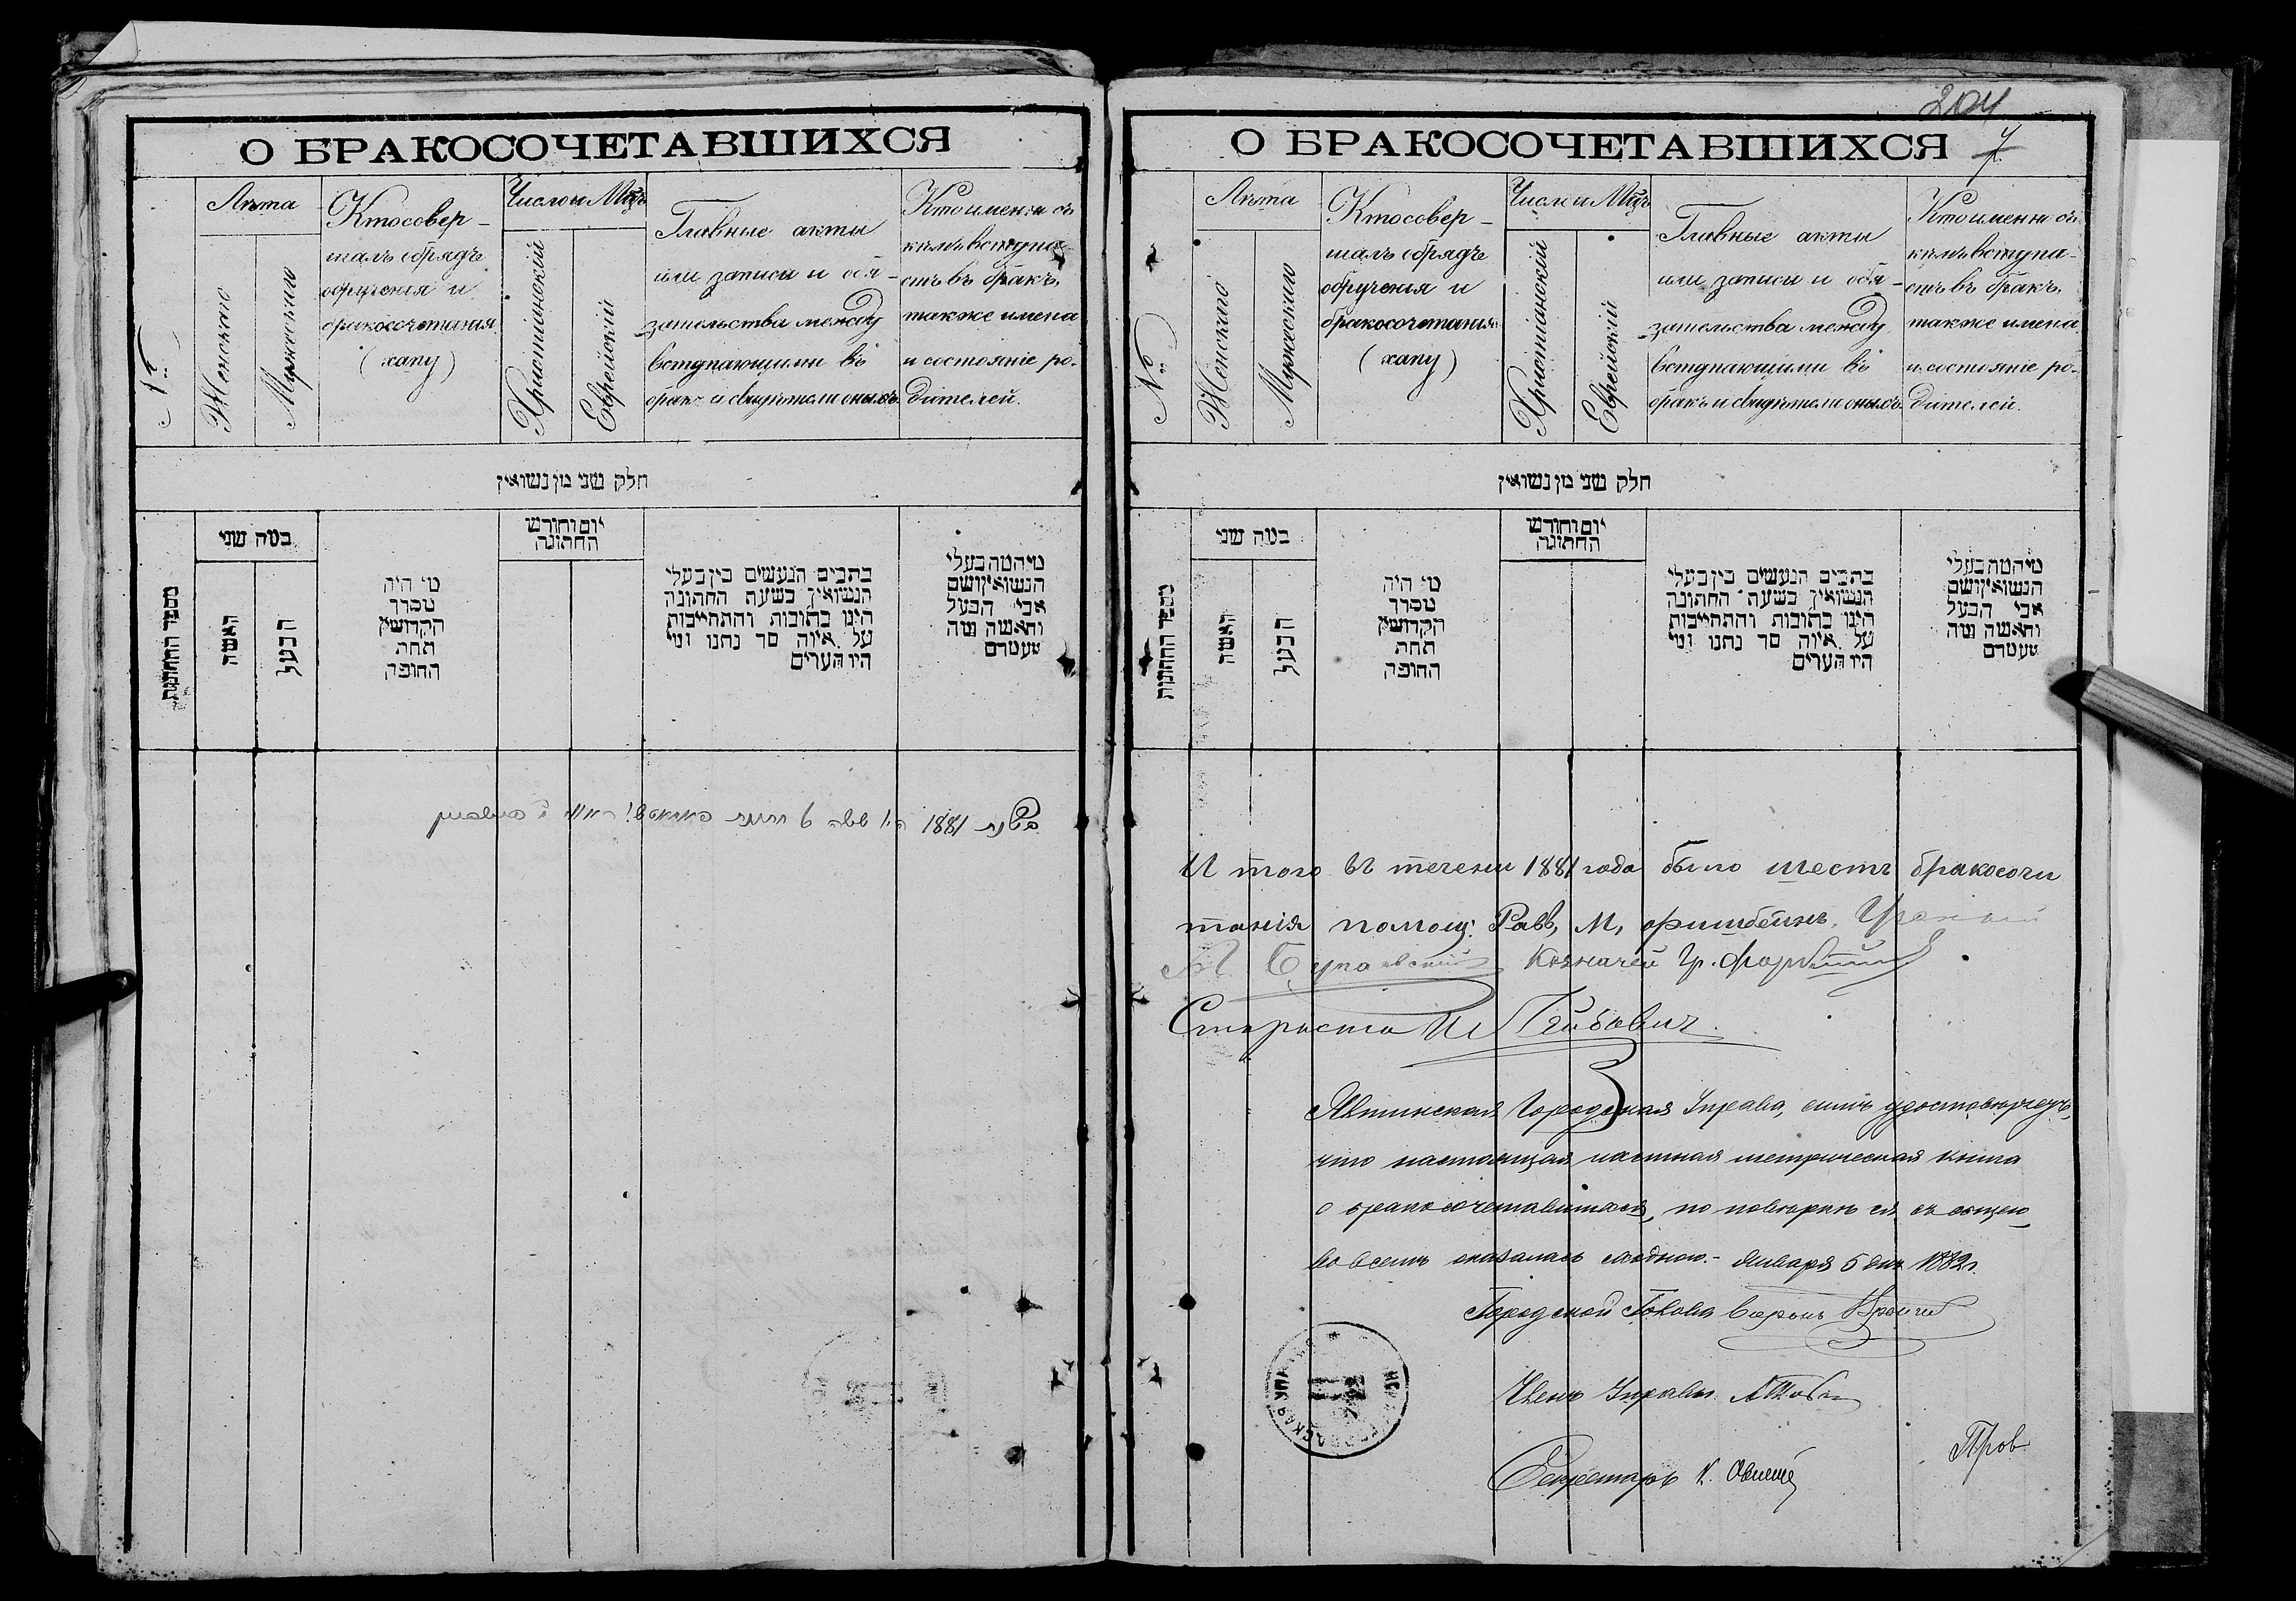 О БРАКОСОЧЕТАВШИХСЯ
№
Лѣта
Женскаго
Мужескаго
Кто совер-
шалъ обрядъ
обрученія и
бракосочетанія
(хапу)
Число и Мѣцъ
Христіанскій
Еврейскій
Главные акты
или записи и обя-
зательства между
вступающими въ
бракъ и свидѣтели оныхъ
Кто именно съ
кѣмъ вступа-
етъ въ бракъ,
также имена
и состояніе ро-
дителей.
חלק שני מן נשואין
מספר החתונות
כמה שני
האשה
הבעל
מי היה
מסדר
הקדושין
תחת
החופה
יום וחודש
החתונה
כתבים הנעשים בין בעלי
הנשואין בשעת החתונה
היינו כתובות והתחייבות
על איזה סך נתנו ומי
היו העדים
מי המה בעלי
הנשואין ושם
אבי הבעל
והאשה ומה
מעמדם
בשנת 1881
204
О БРАКОСОЧЕТАВШИХСЯ 7
№
Лѣта
Женскаго
Мужескаго
Кто совер-
шалъ обрядъ
обрученія и
бракосочетанія
(хапу)
Число и Мѣцъ
Христіанскій
Еврейскій
Главные акты
или записи и обя-
зательства между
вступающими въ
бракъ и свидѣтели оныхъ
Кто именно съ
кѣмъ вступа-
етъ въ бракъ,
также имена
и состояніе ро-
дителей.
חלק שני מן נשואין
מספר החתונות
כמה שני
האשה
הבעל
מי היה
מסדר
הקדושין
תחת
החופה
יום וחודש
החתונה
כתבים הנעשים בין בעלי
הנשואין בשעת החתונה
היינו כתובות והתחייבות
על איזה סך נתנו ומי
היו העדים
מי המה בעלי
הנשואין ושם
אבי הבעל
והאשה ומה
מעמדם
И того въ течени 1881 года было шесть бракосочи
танія помощ. Равв. М. Ученый
Казначей Гр.
Староста
Ялтинская Городская Управа, симъ удостовѣряетъ,
что настоящая частная метрическая книга
о бракосочетавшихся, по повѣркѣ ея съ общею,
во всемъ оказалась сходною.- Января 5 дня 1882 г.
Городской Голова Баронъ
Членъ Управы
Секретарь К.
Пров